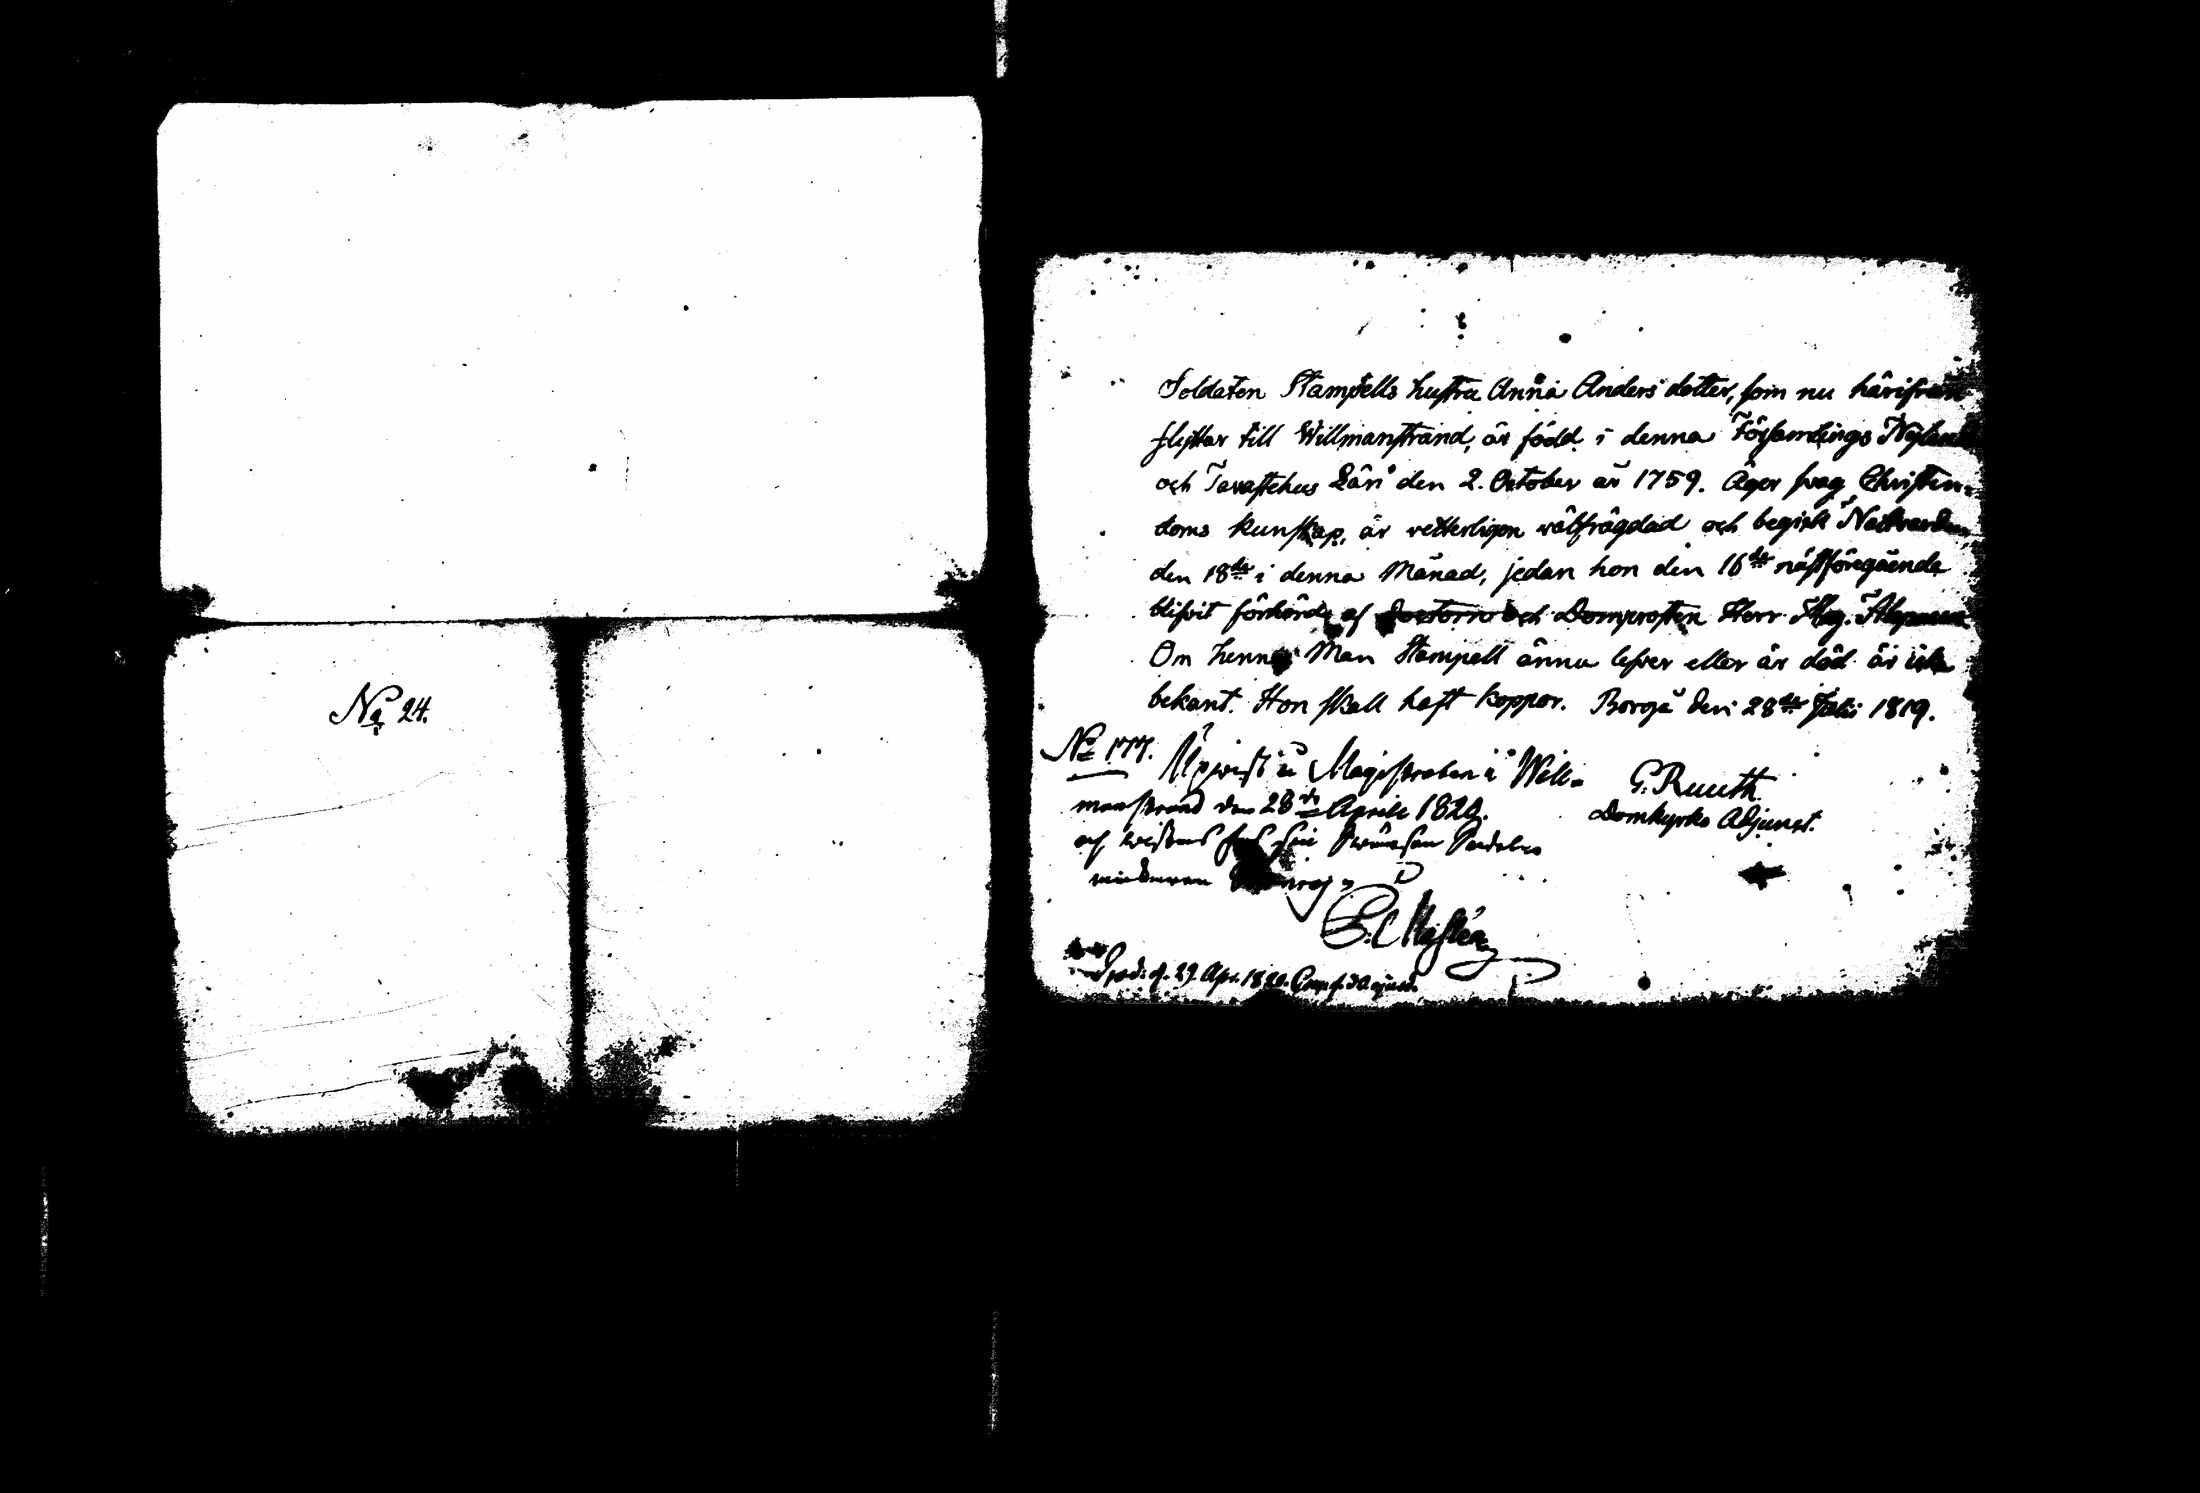 No 24.
Soldaten Stampells hustru Anna Anders dotter, som nu härifrån
flyttar till Willmanstrand, är född i denna Församlings Nylands
och Tavastehus Län den 2. October år 1759. Äger svag Christen-
doms kunskap, är vetterligen välfrägdad och begick Nattvarden
den 18de i denna Månad, sedan hon den 16de nästföregående
blifvit förhörd af Doctorn och Domprosten Herr Mag.
Om hennes Man Stampell ännu lefver eller är död är icke
bekant. Hon skall haft koppor. Borgå den 28de Julii 1819.
No 177. Uppvist i Magistraten i Will-
manstrand den 28de Aprile 1820.
G. Ruuth
Domkyrko Adjunct.
d. 29. Apr. 1820.